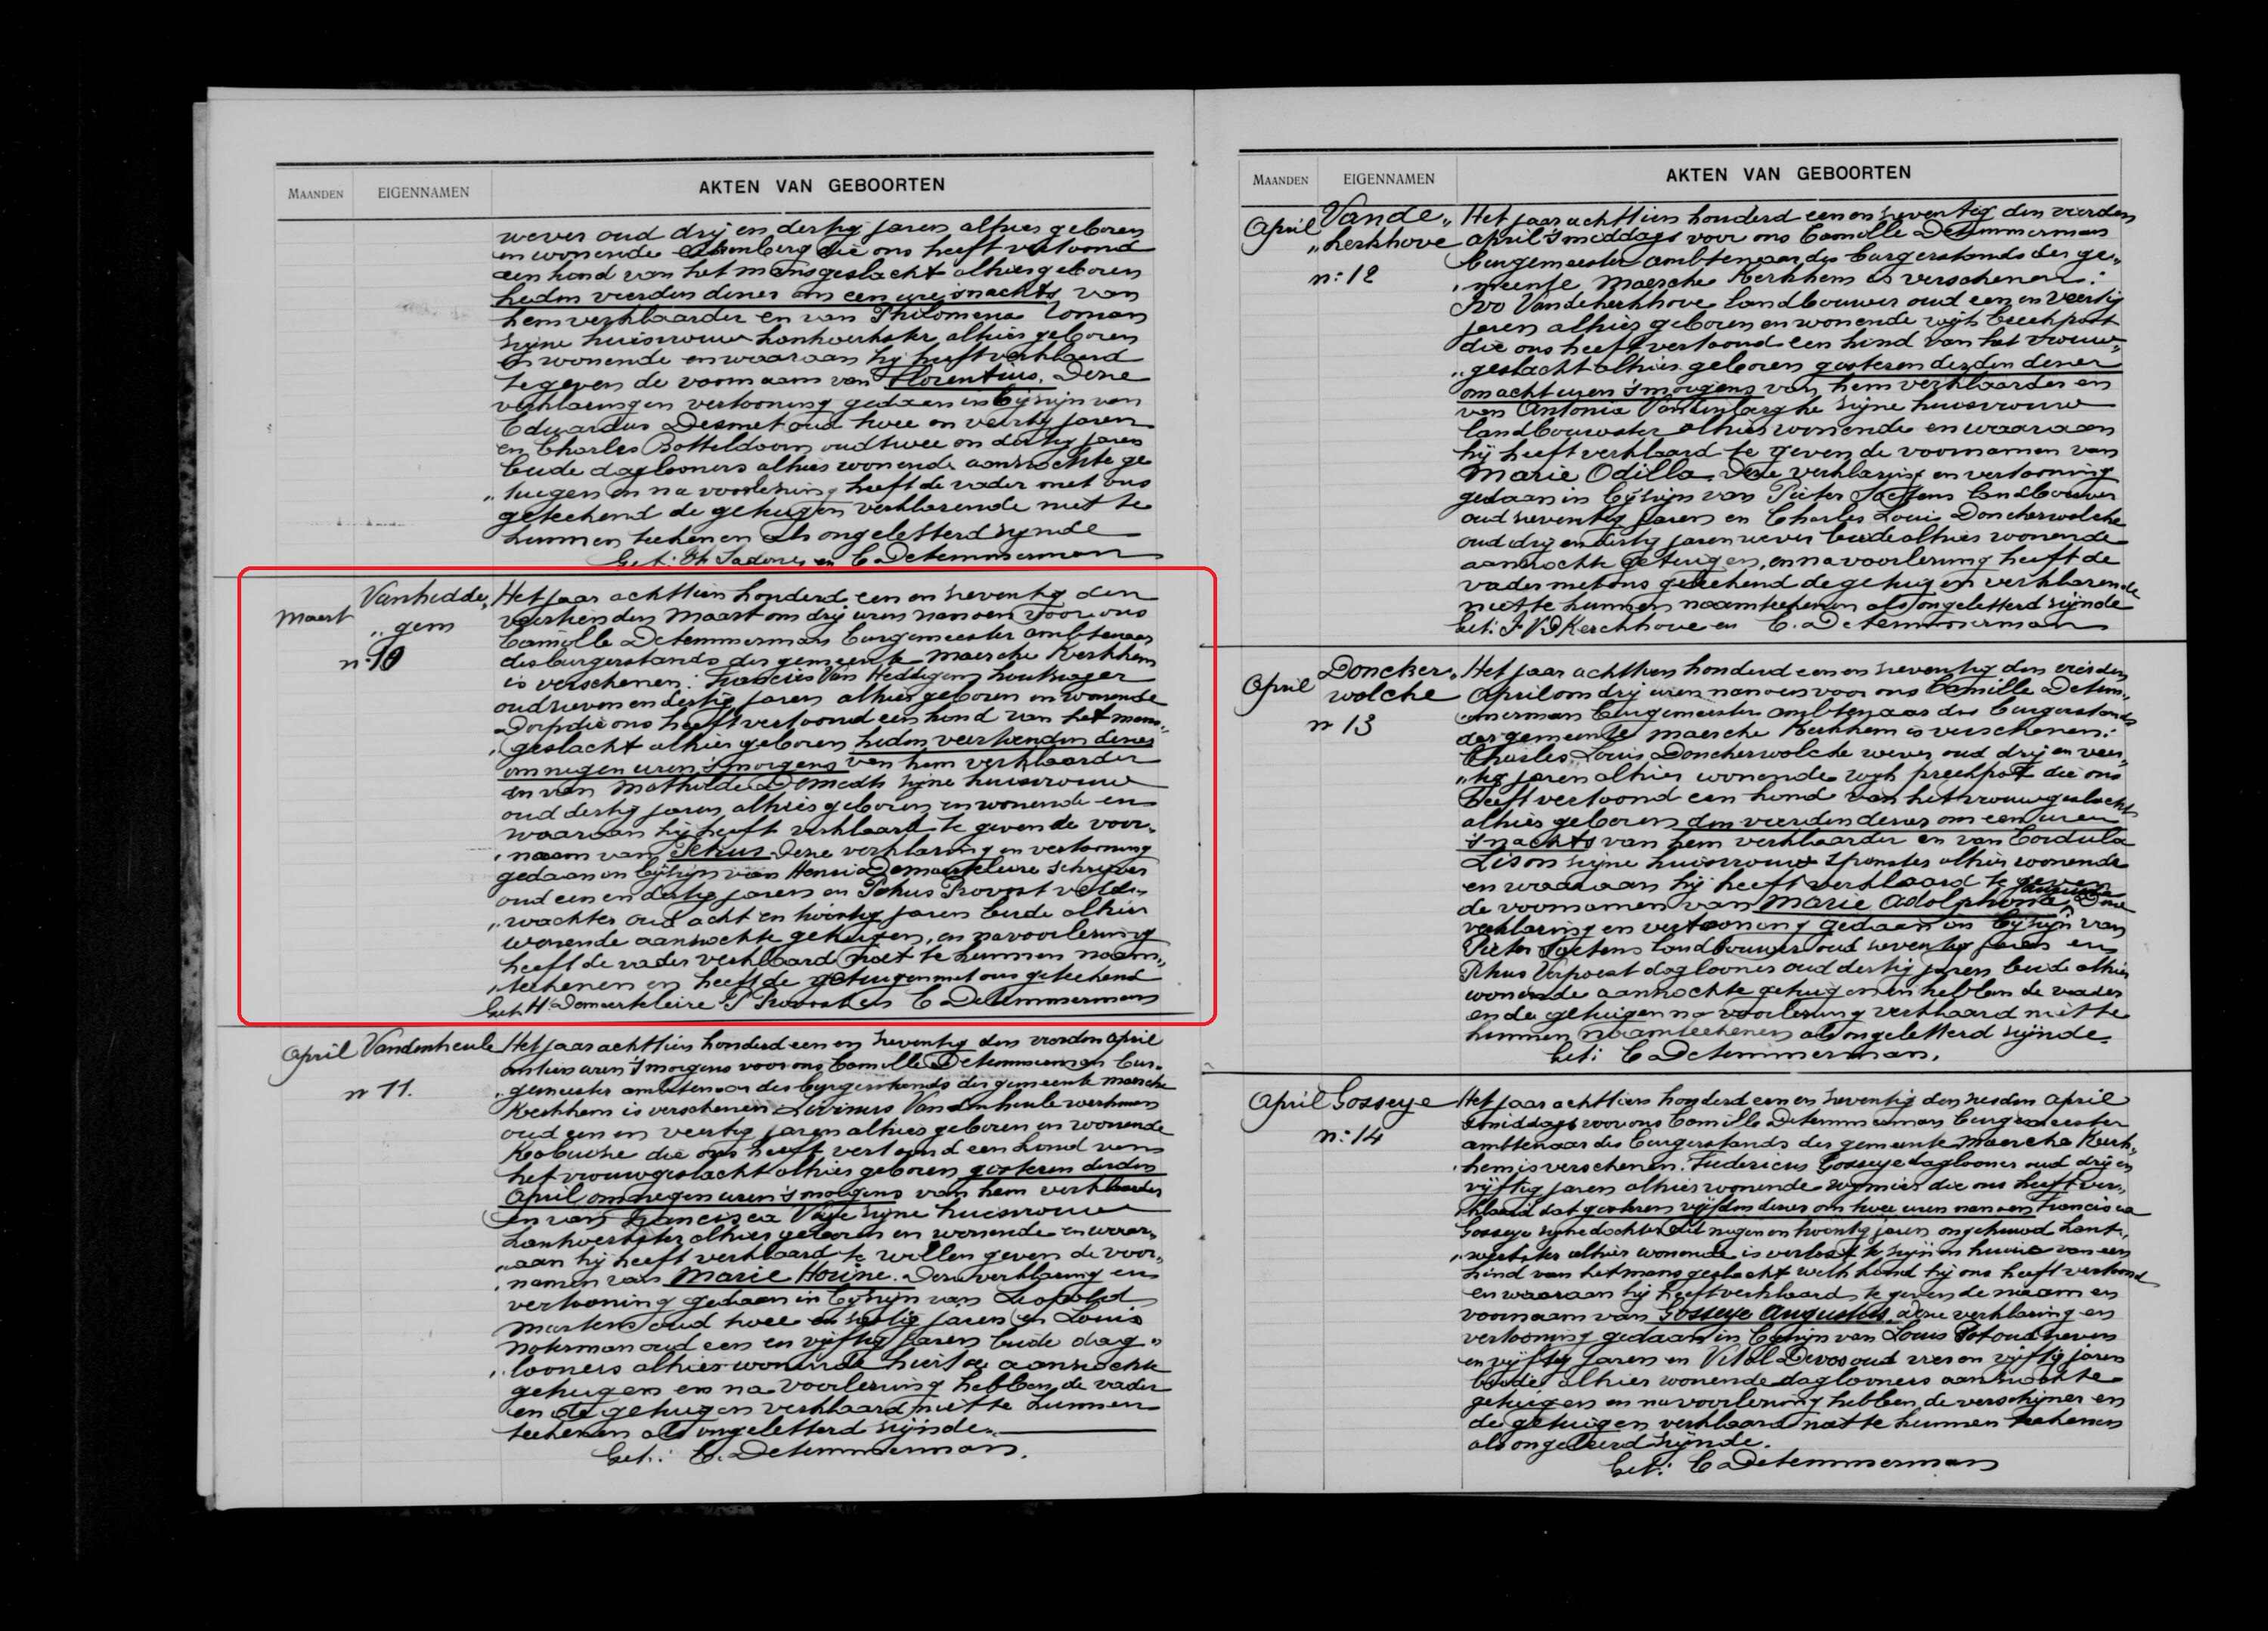 MAANDEN EIGENNAMEN AKTEN VAN GEBOORTEN
wever oud drij en dertig jaren alhier geboren
en wonende die ons heeft vertoond
een kend van het mansgeslacht alhier geboren
heden vierden dezer om een ure snachts van
hem verklaarder en van Philomena Coman
zijne huisvrouw kantwerkster alhier geboren
en wonende en waaraan hij heeft verklaard
te geven de voornaam van Florentius. Deze
verklaring en vertooning gedaan in bijzijn van
Eduardus Desmet oud twee en veertig jaren
en Charles Botteldoorn oud twee en dertig jaren
beide daglooners alhier wonende aanzochte ge
"tuigen en na voorlezing heeft de vader met ons
geteekend de getuigen verklarende niet te
kunnen teekenen als ongeletterd zijnde
Get: en C Detemmerman
Maart Vanhedde,, gem n: 10
Het jaar achttien honderd een en zeventig den
veertienden Maart om drij uren namoen voor ons
Camille Detemmerman burgemeester ambtenaar
des burgerstands der gemeente Maercke Kerkhem
is verschenen: Francies Van Heddegem houtzager
oud zeven en dertig jaren alhier geboren en wonende
Dorp die ons heeft vertoond een kend van het mans"
"geslacht alhier geboren heden veertienden dezer
om negen uren 'smorgens van hem verklaarder
en van Mathilde Desmedt zijne huisvrouw
oud dertig jaren alhier geboren en wonende en
waaraan hij heeft verklaard te geven de voor"
"naam van Petrus. Deze verklaring en vertooning
gedaan in bijzijn van Henri Demarteleire schrijver
oud een en dertig jaren en Petrus Provost velde"
"wachter oud acht en twintig jaren beide alhier
wonende aanzochte getuigen, en na voorlezing
heeft de vader verklaard niet te kunnen naam"
"teekenen en heeft de getuigen met ons geteekend
Get: H Demarteleire P Provost en C Detemmerman
April Vandenheule n 11.
Het jaar achttien honderd een en zeventig den vierden April
om tien uren 'smorgens voor ons Camille Detemmerman bur"
"gemeester ambtenaar des burgerstands der gemeente maercke
Kerkhem is verschenen Livinus Vandenheule werkman
oud een en veertig jaren alhier geboren en wonende
die ons heeft vertoond een kend van
het vrouwgeslacht alhier geboren gisteren derden
April om negen uren 'smorgens van hem verklaarder
en van Francisca zijne huisvrouw
kantwerkster alhier geboren en wonende en waar"
"aan hij heeft verklaard te willen geven de voor"
"namen van Marie Horine. Deze verklaring en
vertooning gedaan in bijzijn van Leopold
Martens oud twee en jaren en Louis
Noterman oud een en vijftig jaren beide dag"
"looners alhier wonende hiertoe aanzochte
getuigen en na voorlezing hebben de vader
en de getuigen verklaard niet te kunnen
teekenen als ongeletterd zijnde.
Get: C. Detemmerman.
MAANDEN EIGENNAMEN AKTEN VAN GEBOORTEN
April Vande,, ,,kerkhove n: 12
Het jaar achttien honderd een en zeventig den vierden
april 'smiddags voor ons Camille Detemmerman
burgemeester ambtenaar des burgerstands der ge"
"meente Maercke Kerkhem is verschenen:
Ivo Vandekerkhove landbouwer oud een en veertig
jaren alhier geboren en wonende wijk
die ons heeft vertoond een kind van het vrouw"
"geslacht alhier geboren gisteren derden dezer
om acht uren 'smorgens van hem verklaarder en
van Antonia zijne huisvrouw
landbouwster alhier wonende en waaraan
hij heeft verklaard te geven de voornamen van
Marie Odilla. Deze verklaring en vertooning
gedaan in bijzijn van Pieter Saetens landbouwer
oud zeventig jaren en Charles Louis Donckerwolcke
oud drij en dertig jaren wever beide alhier wonende
aanzochte getuigen, en na voorlezing heeft de
vader met ons geteekend de getuigen verklarende
niet te kunnen naamteekenen als ongeletterd zijnde
Get: J. VDKerchhove en C. Detemmerman
April Doncker" wolcke n 13
Het jaar achttien honderd een en zeventig den
April om drij uren namoen voor ons Camille Detem"
"merman burgemeester ambtenaar des burgerstands
der gemeente maercke Kerkhem is verschenen:
Charles Louis Donckerwolcke wever oud drij en veer"
"tig jaren alhier wonende wijk die ons
heeft vertoond een kind van het vrouwgeslacht
alhier geboren den vierden dezer om een uren
'snachts van hem verklaarder en van Cordula
zijne huisvrouw spinster alhier wonende
en waaraan hij heeft verklaard te geven
de voornamen van Marie Adolphona Deze
verklaring en vertooning gedaan in bijzijn van
Pieter Saetens landbouwer oud zeventig jaren en
Petrus Verpoest daglooner oud dertig jaren beide alhier
wonende aanzochte getuigen en hebben de vader
en de getuigen na voorlezing verklaard niet te
kunnen naamteekenen als ongeletterd zijnde
Get: C Detemmerman.
April Gosseye n: 14
Het jaar achttien honderd een en zeventig den zesden april
'smiddags voor ons Camille Detemmerman burgemeester
ambtenaar des burgerstands der gemeente Maercke Kerk"
"hem is verschenen. Fredericus Gosseye daglooner oud drij en
vijftig jaren alhier wonende die ons heeft ver"
"klaard dat gisteren vijfden dezer om twee uren namoen Francisca
Gosseye zijne dochter oud negen en twintig jaren ongehuwd kant"
"werkster alhier wonende is verlost te zijn en huize van een
kind van het mansgeslacht welk kend hij ons heeft vertoond
en waaraan hij heeft verklaard te geven de naam en
voornaam van Gosseye Augustus. Deze verklaring en
vertooning gedaan in bijzijn van Louis oud zeven
en vijftig jaren en Vital Devos oud en vijftig jaren
beide alhier wonende daglooners aanzochte
getuigen en na voorlezing hebben de verschijner en
de getuigen verklaard niet te kunnen teekenen
als ongeletterd zijnde.
Get: C Detemmerman